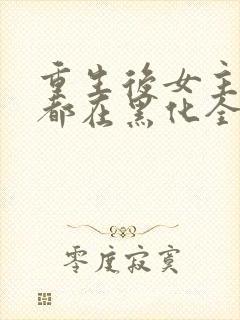 重生後女主
都在黑化全
零度寂寞